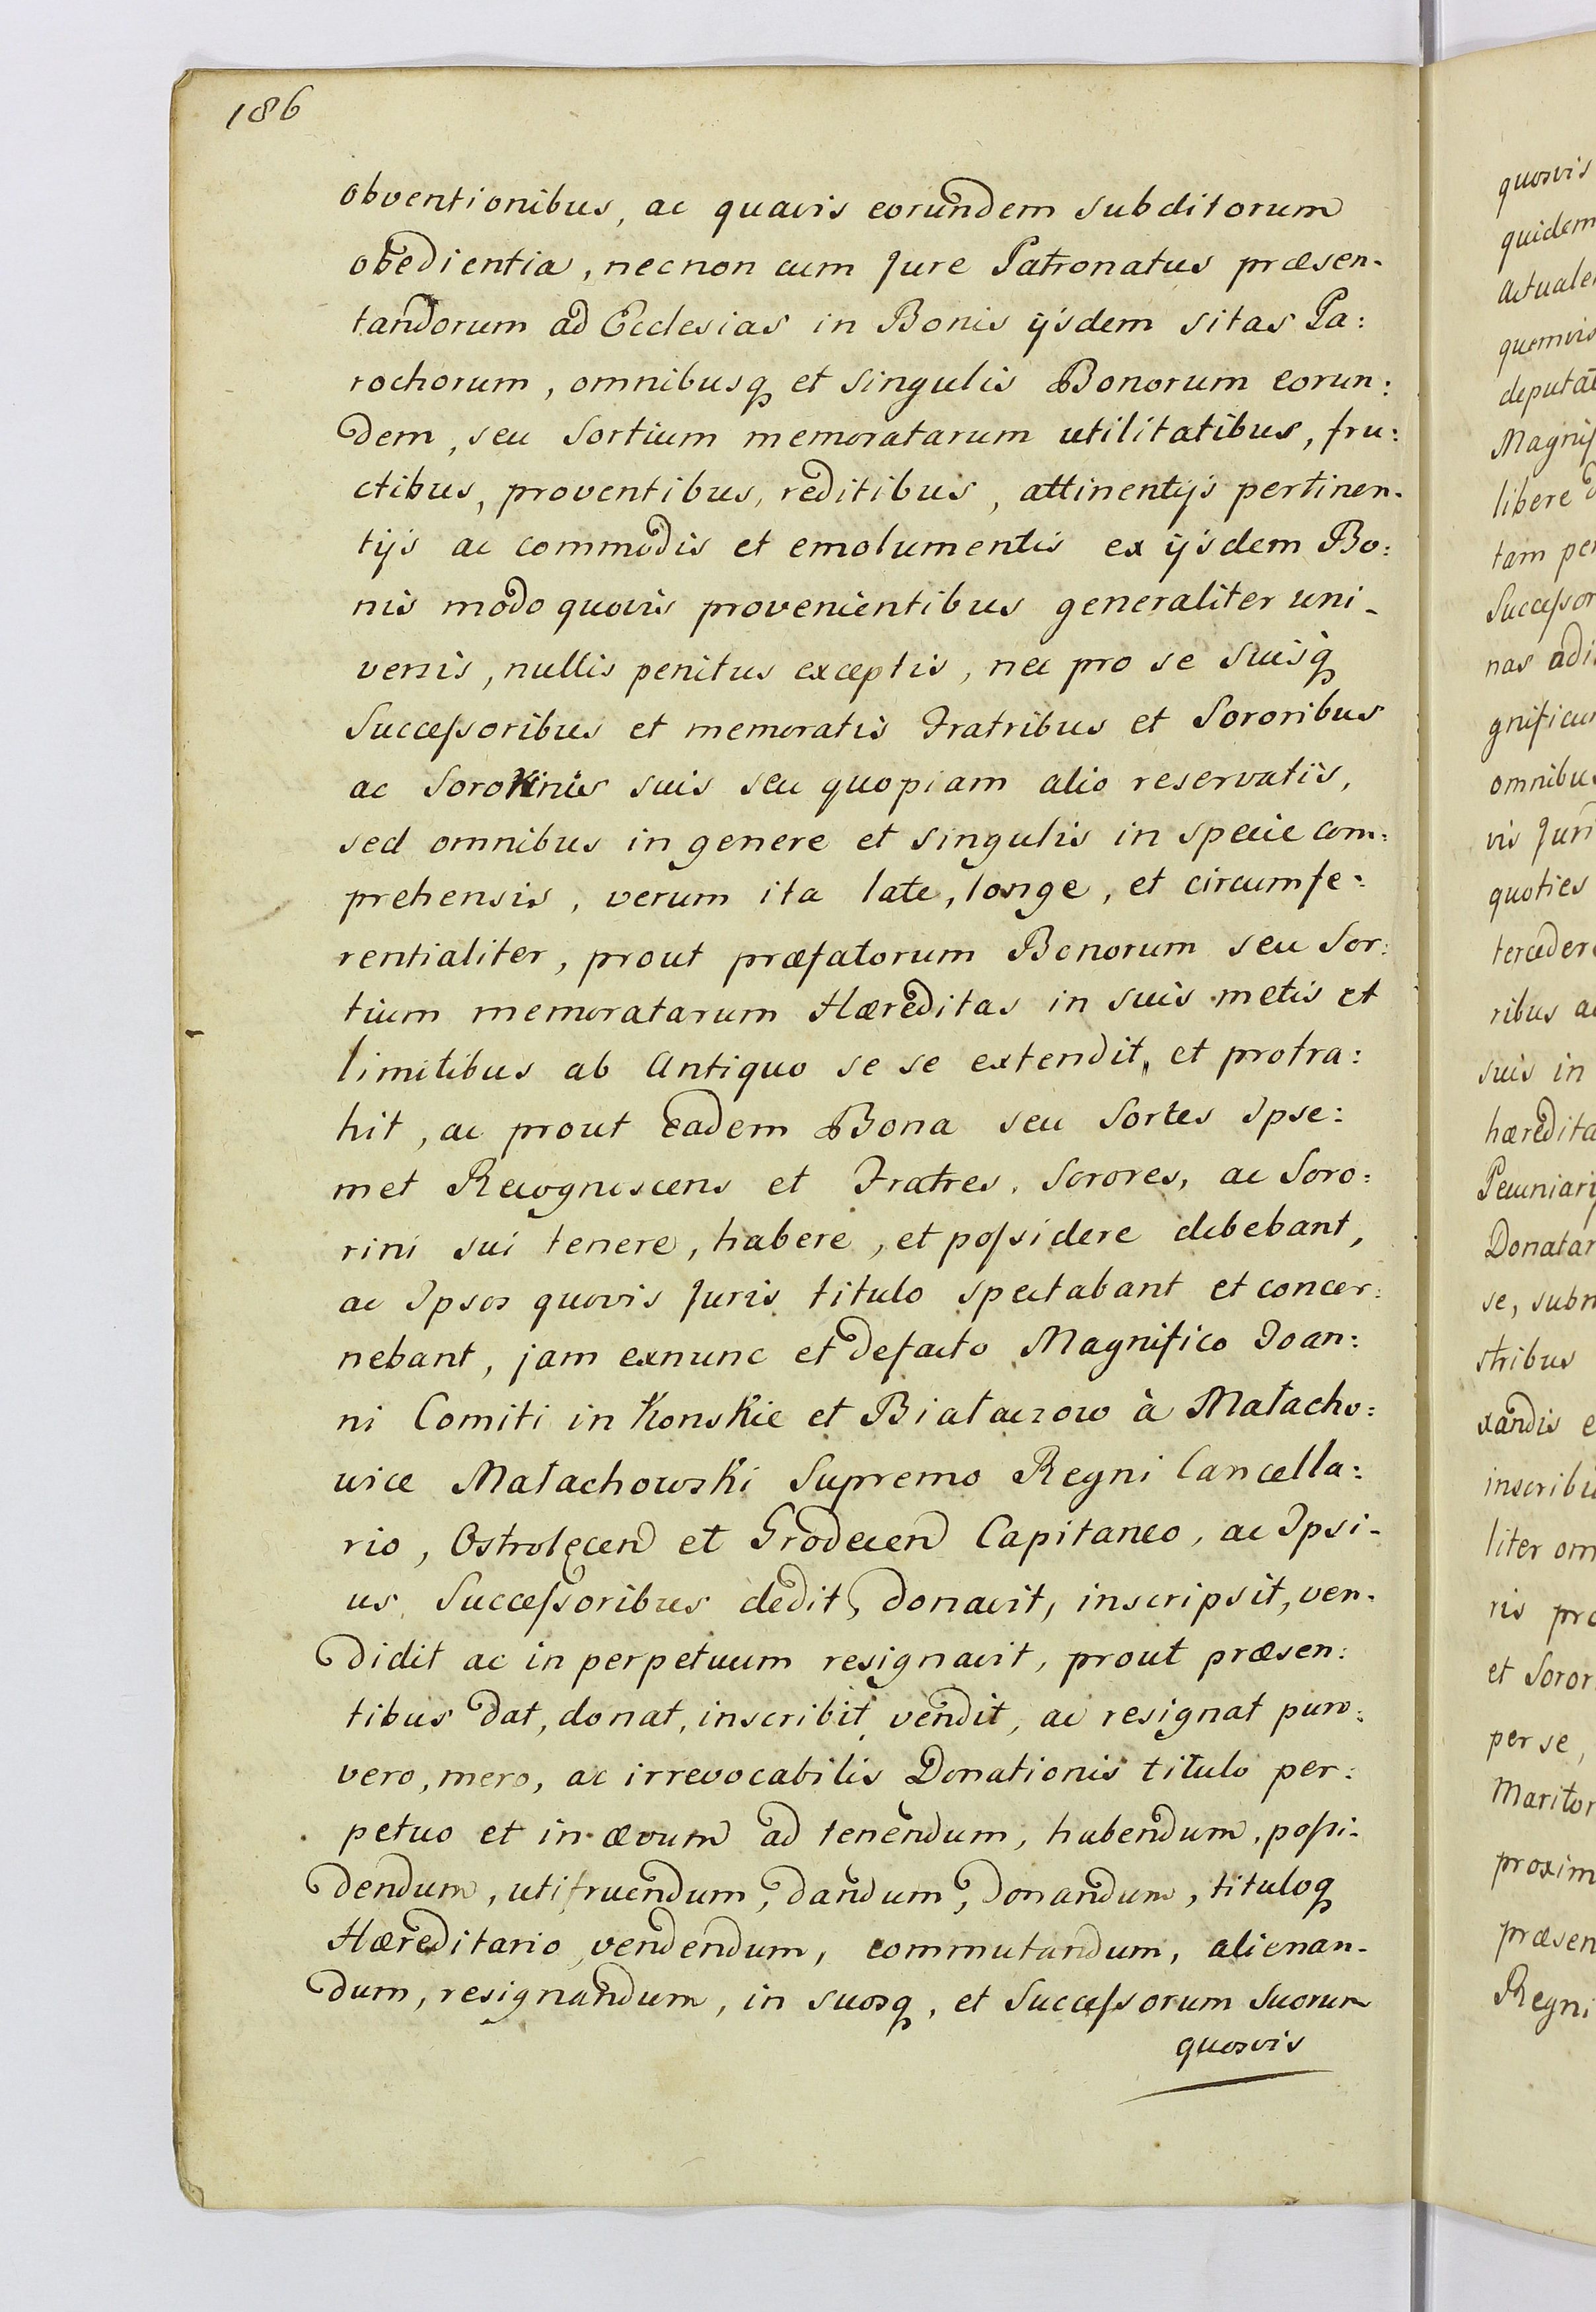 186
obventionibus, ac quavis eorundem subditorum
obedientia, necnon cum Jure Patronatus præsen-
tandorum ad Ecclesias in Bonis ijsdem sitas Pa:
rochorum, omnibusq et singulis Bonorum eorun:
dem, seu Sortium memoratarum utilitatibus, fru:
ctibus, proventibus, reditibus, attinentijs pertinen-
tijs ac commodis et emolumentis ex ijsdem Bo:
nis modo quovis provenientibus generaliter uni-
versis, nullis penitus exceptis, nec pro se Suisq
Successoribus et memoratis Fratribus et Sororibus
ac Sororinis suis seu quopiam alio reservatis,
sed omnibus in genere et singulis in specie com:
prehensis, verum ita late, longe, et circumfe:
rentialiter, prout præfatorum Bonorum seu Sor:
tium memoratarum Hæreditas in suis metis et
limitibus ab Antiquo se se extendit, et protra:
hit, ac prout eadem Bona seu Sortes Ipse:
met Recognoscens et Fratres, Sorores, ac Soro:
rini sui tenere, habere, et possidere debebant,
ac Ipsos quovis Juris titulo spectabant et concer:
nebant, jam exnunc et defacto Magnifico Joan:
ni Comiti in Konskie et Białaczow à Małacho:
wice Małachowski Supremo Regni Cancella:
rio, Ostrolęcen et Grodecen Capitaneo, ac Ipsi-
us Successoribus dedit, donavit, inscripsit, ven-
didit ac in perpetuum resignavit, prout præsen:
tibus dat, donat, inscribit, vendit, ac resignat puro:
vero, mero, ac irrevocabilis Donationis titulo per:
petuo et in ævum ad tenendum, habendum, possi-
dendum, utifruendum, dandum, donandum, tituloq
Hæreditario, vendendum, commutandum, alienan-
dum, resignandum, in suosq, et Successorum Suorum
quosvis
quosvis
quidem
actuale
quemvis
deputat
Magnif
libere d
tam per
Successor
nas adi
gnificum
omnibus
vis Juri
quoties
terceder
ribus ac
suis in
hæredita
Pecuniarij
Donatar
se, subm
stribus
xandis e
inscribi
liter om
ris pro
et Soror
per se,
Maritor
proxim
præsen
Regni